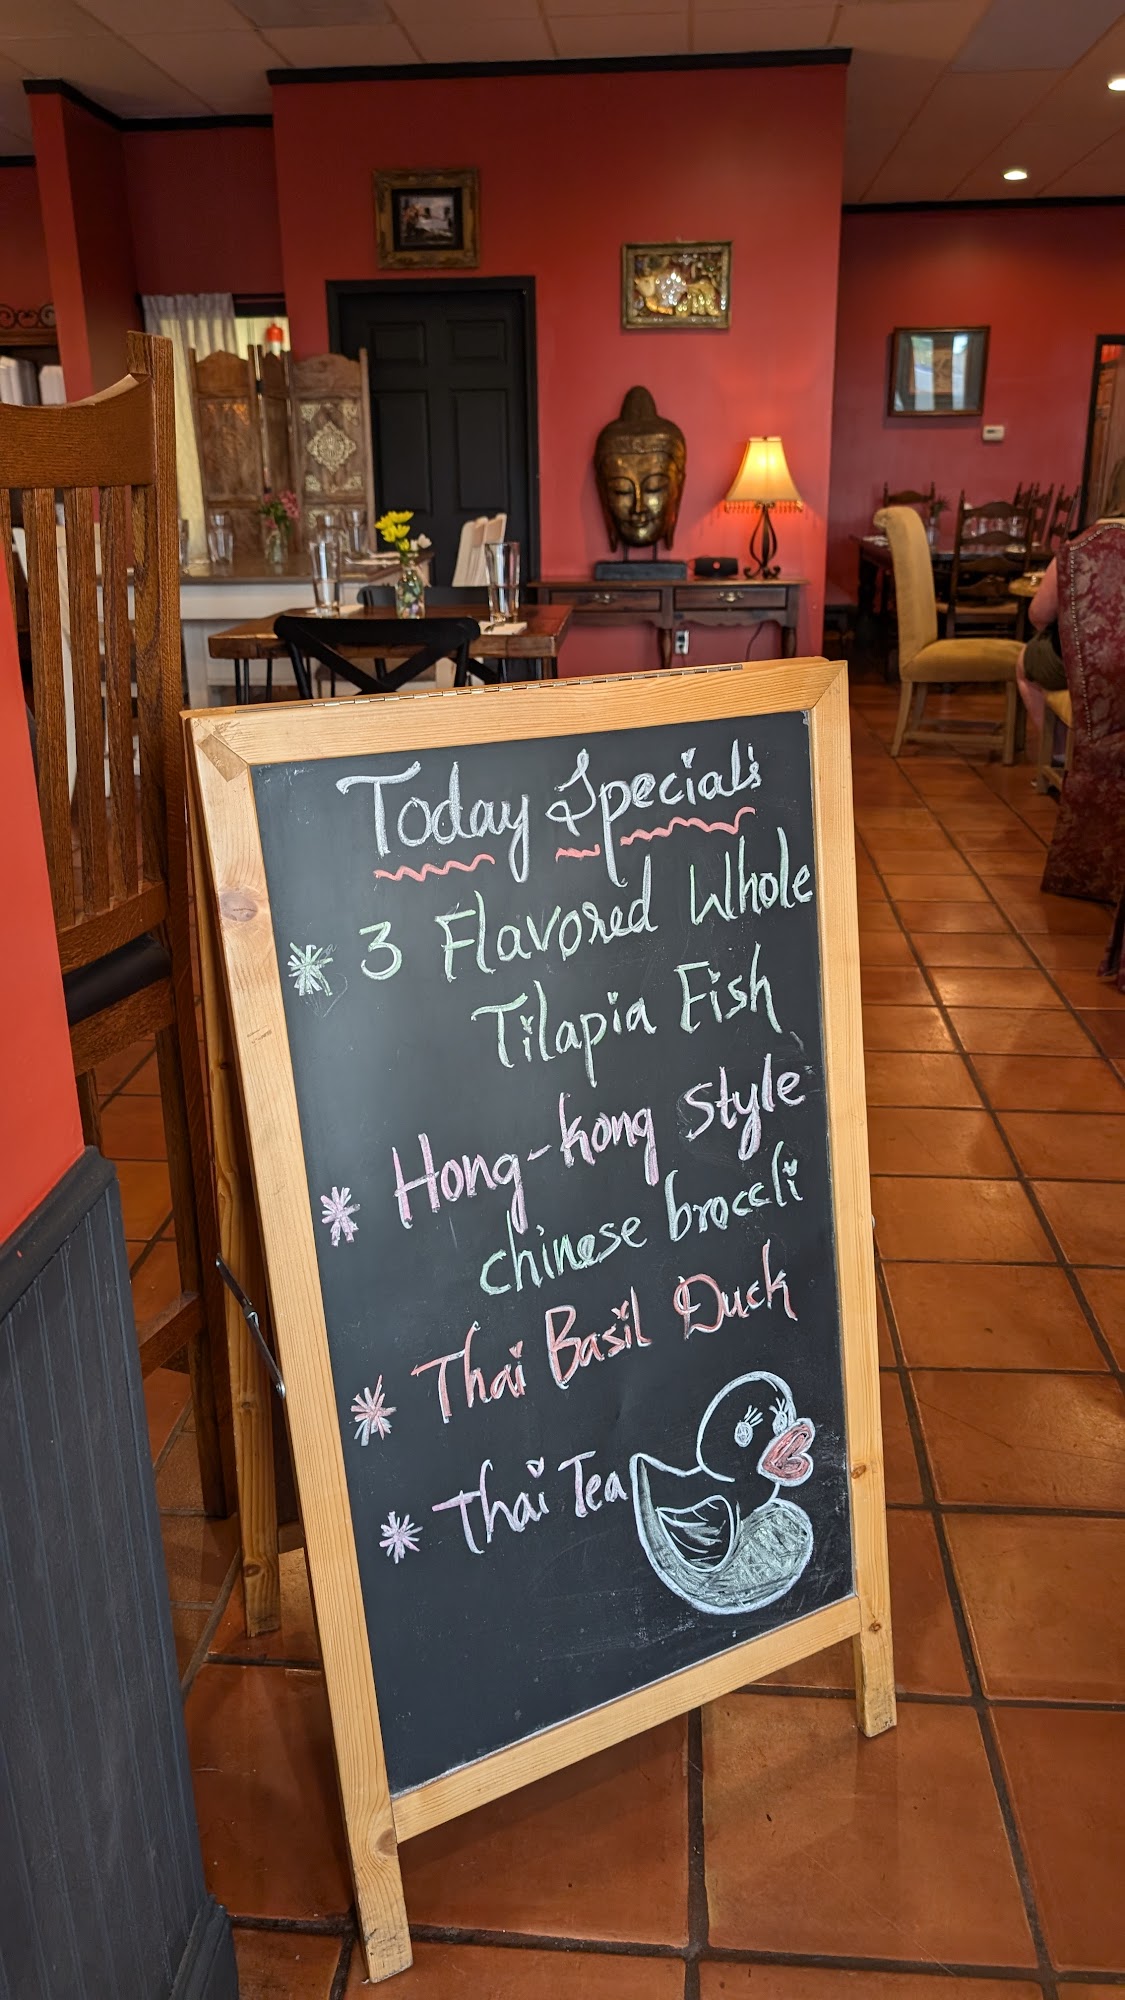 Today Special's
* 3 Flavored Whole
Tilapia Fish
* Hong-Kong Style
chinese broccli
* Thai Basil Duck
* Thai Tea